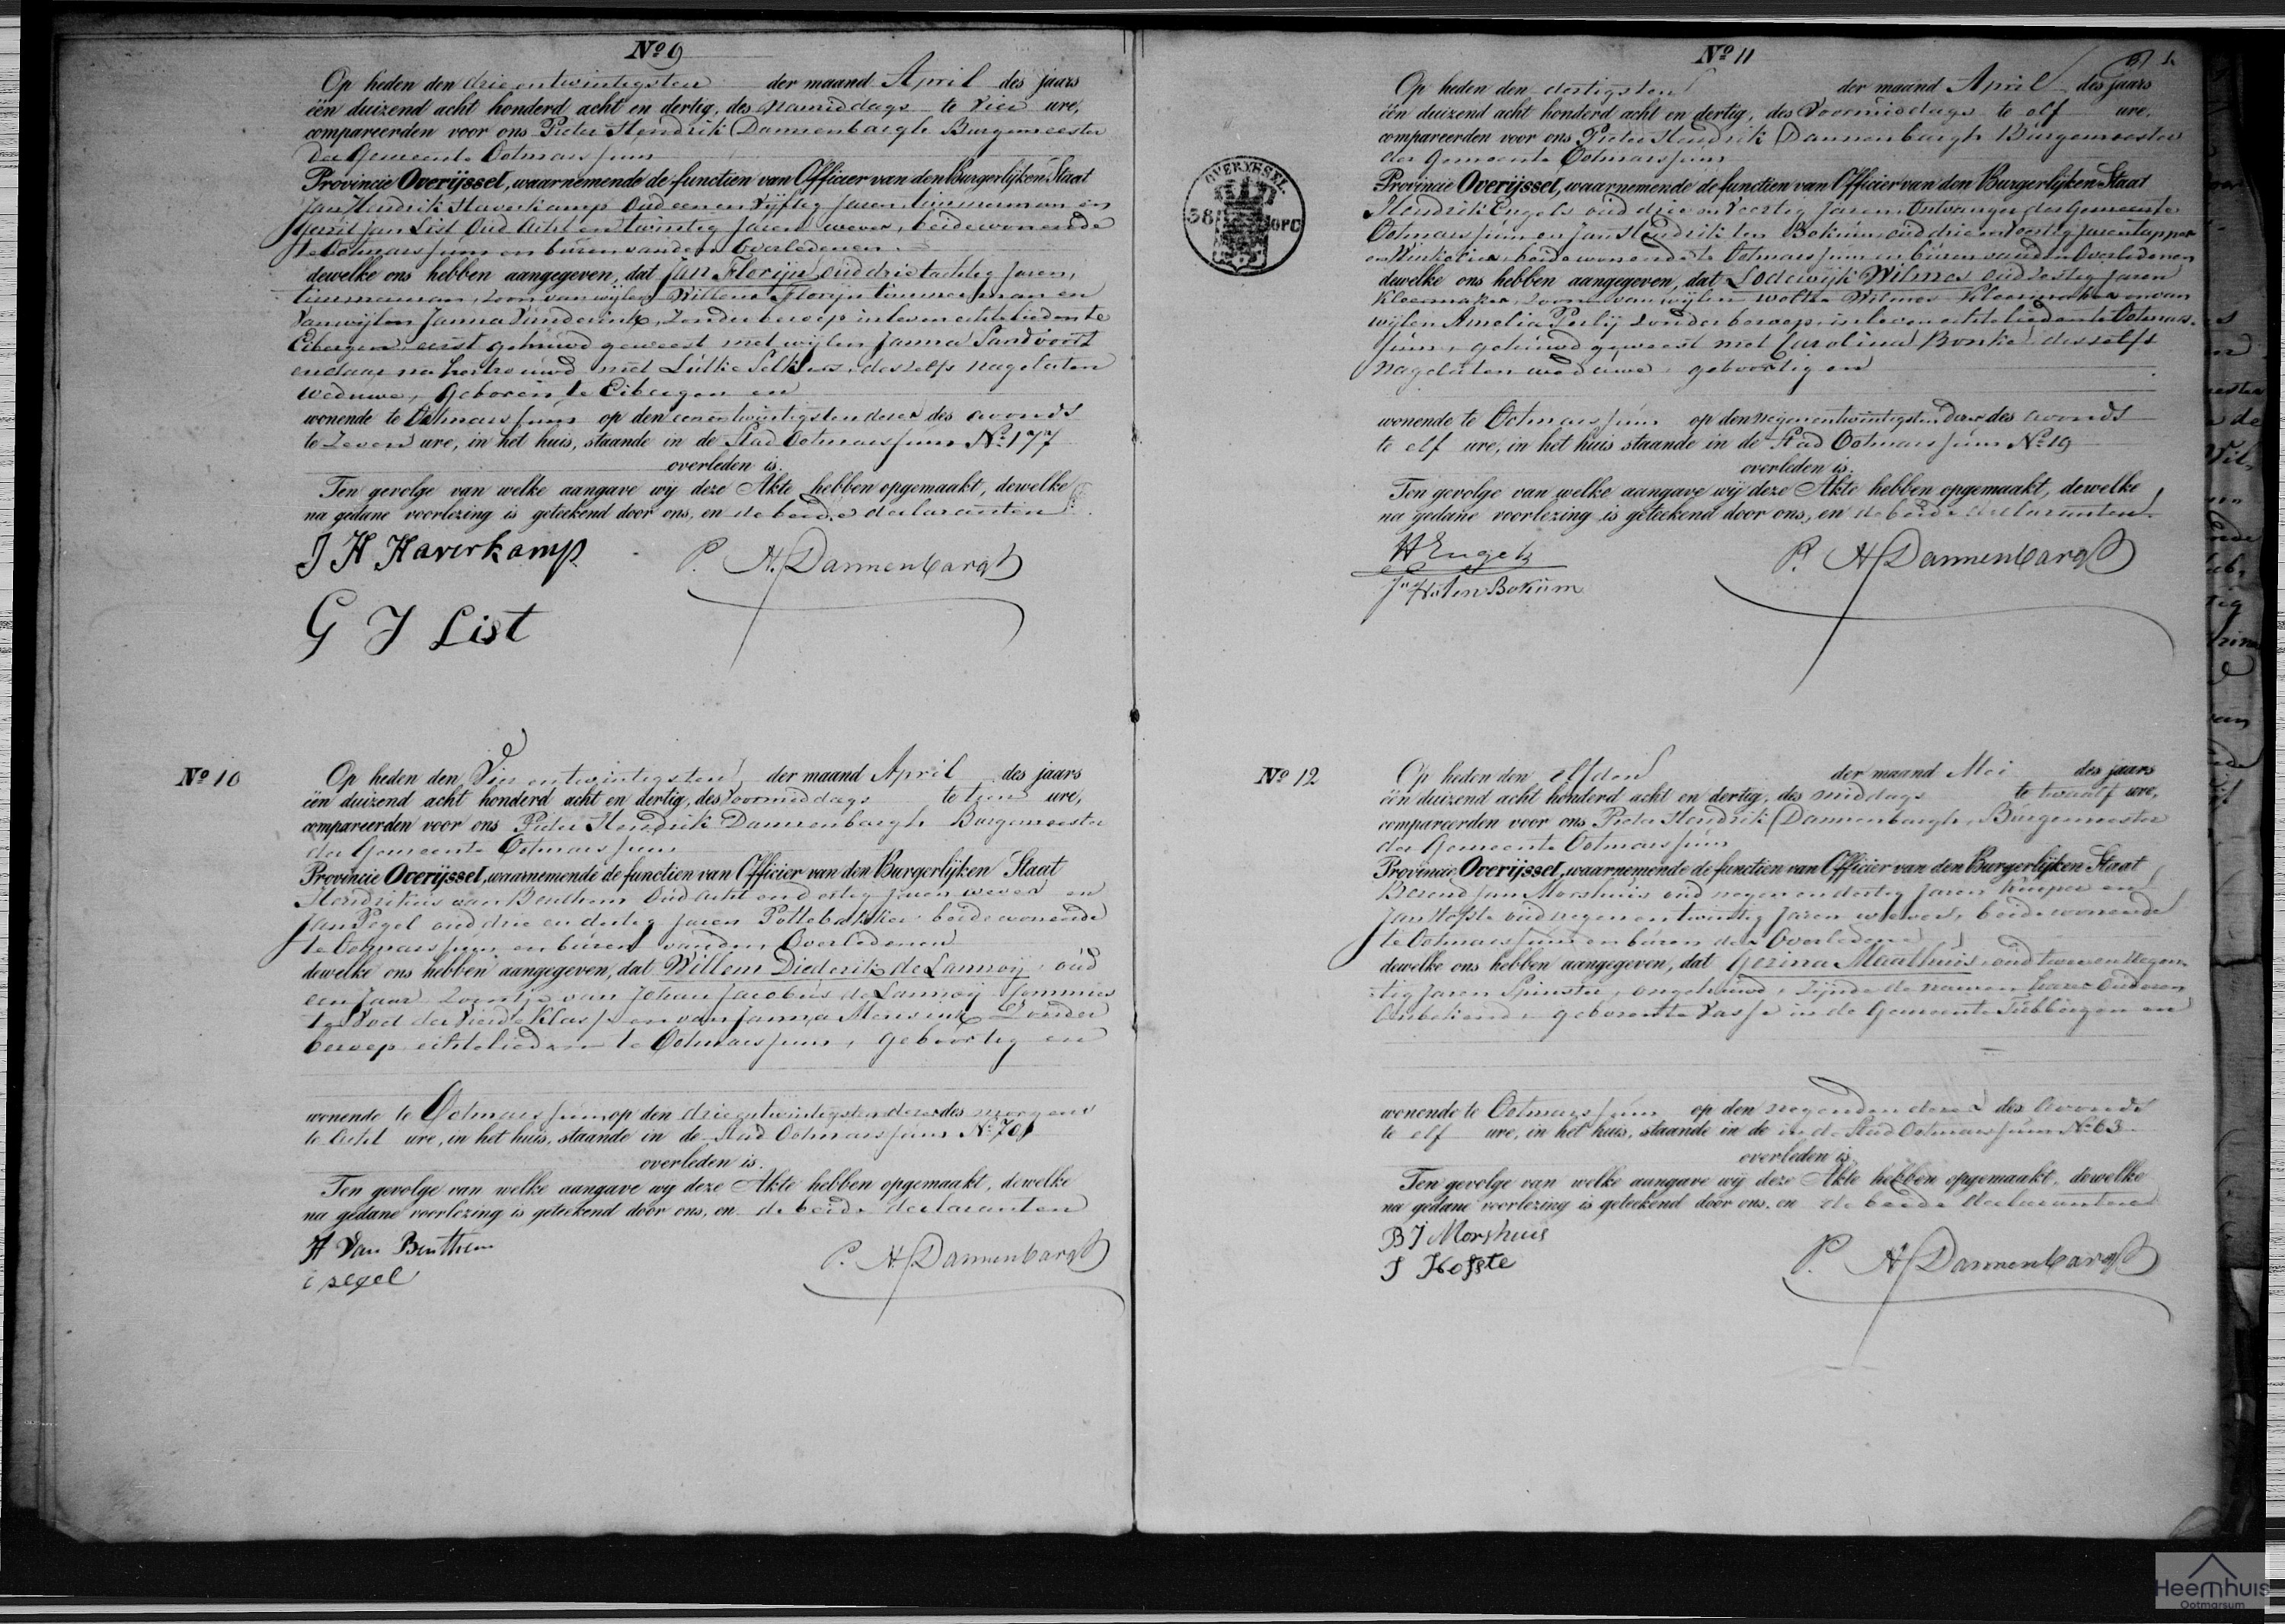 Nº 9
Op heden den drieentwintigsten der maand April des jaars
één duizend acht honderd acht en dertig, des namiddags te vier ure,
compareerden voor ons Pieter Hendrik Dannenbargh Burgemeester
der Gemeente Ootmarssum
Provincie Overijssel, waarnemende de functien van Officier van den Burgerlijken Staat
Jan Hendrik Haverkamp Oud een en vijftig Jaren, timmerman en
Gerrit Jan List Oud Acht en twintig Jaren wever, beide wonende
te Ootmarssum en buren van den Overledenen
dewelke ons hebben aangegeven, dat Jan Florijn oud drie tachtig Jaren,
timmerman, Zoon van wijlen Willem Florijn timmerman en
van wijlen Janna, Zonder beroep in leven echtelieden te
Eibergen, eerst gehuwd geweest met wijlen Janna Sandvoort
en daar na hertrouwd met deszelfs nagelaten
weduwe, Geboren te Eibergen en
wonende te Ootmarssum op den eenentwintigsten dezer des avonds
te Zeven ure, in het huis, staande in de Stad Ootmarssum Nº 177
overleden is.
Ten gevolge van welke aangave wij deze Akte hebben opgemaakt, dewelke
na gedane voorlezing is geteekend door ons, en de beide declaranten
J H Haverkamp
P. H. Dannenbargh
G J List
Nº 10
Op heden den Vier entwintigsten der maand April des jaars
één duizend acht honderd acht en dertig, des Voormiddags te tien ure,
compareerden voor ons Pieter Hendrik Dannenbargh Burgemeester
der Gemeente Ootmarssum
Provincie Overijssel, waarnemende de functien van Officier van den Burgerlijken Staat
Hendrikus van Benthem Oud acht en dertig Jaren wever en
Jan Pegel oud drie en dertig Jaren Pottebakker beide wonende
te Ootmarssum en buren van den Overledenen
dewelke ons hebben aangegeven, dat Willem Diederik de Lannoij oud
een Jaar Zoontje van Johan Jacobus de Lannoij Commies
te Voet der Vierde Klasse en van Janna Mensink Zonder
beroep echtelieden te Ootmarssum, Geboortig en
wonende te Ootmarssum op den drieentwintigsten dezer des morgens
te acht ure, in het huis, staande in de Stad Ootmarssum Nº 70
overleden is.
Ten gevolge van welke aangave wij deze Akte hebben opgemaakt, dewelke
na gedane voorlezing is geteekend door ons, en de beide declaranten
H Van Benthem
P. H. Dannenbargh
Nº 11
Op heden den dertigsten der maand April des jaars
één duizend acht honderd acht en dertig, des Voormiddags te elf ure,
compareerden voor ons Pieter Hendrik Dannenbargh Burgemeester
der Gemeente Ootmarssum
OVERYSSEL.
Provincie Overijssel, waarnemende de functien van Officier van den Burgerlijken Staat
Hendrik Engels oud drie en Veertig Jaren, Ontvanger der Gemeente
Ootmarssum en Jan Hendrik ten Bokum, oud drie en Veertig Jaren tapper
en Winkelier, beide wonende te Ootmarssum en buren van den Overledenen
dewelke ons hebben aangegeven, dat Lodewijk Wilmes oud Zestig Jaren
Kleermaker, Zoon van wijlen Wolter Wilmes Kleermaker en van
wijlen Amelia Zonder beroep in leven echtelieden te Ootmars-
sum, gehuwd geweest met Carolina Bonke deszelfs
nagelaten weduwe, geboortig en
wonende te Ootmarssum op den negenentwintigsten dezer des avonds
te elf ure, in het huis staande in de Stad Ootmarssum Nº 19
overleden is.
Ten gevolge van welke aangave wij deze Akte hebben opgemaakt, dewelke
na gedane voorlezing is geteekend door ons, en de beide declaranten
H Engels
P. H Dannenbargh
J H ten Bokum
Nº 12
Op heden den elfden der maand Mei des jaars
één duizend acht honderd acht en dertig, des middags te twaalf ure,
compareerden voor ons Pieter Hendrik Dannenbargh, Burgemeester
der Gemeente Ootmarssum
Provincie Overijssel, waarnemende de functien van Officier van den Burgerlijken Staat
Berend Jan Morshuis oud negen en dertig Jaren kuiper en
Jan Hofste oud negen en twintig Jaren wever, beide wonende
te Ootmarssum en buren der Overledene
dewelke ons hebben aangegeven, dat Gezina Maathuis oud twee en Negen-
tig Jaren Spinster, ongehuwd, Zijnde de namen harer Ouderen
Onbekend, geboren te Vasse in de Gemeente Tubbergen en
wonende te Ootmarssum op den negenden dezer des Avonds
te elf ure, in het huis, staande in de in de Stad Ootmarssum Nº 63
overleden is
Ten gevolge van welke aangave wij deze Akte hebben opgemaakt, dewelke
na gedane voorlezing is geteekend door ons, en de beide declaranten
B J Morshuis
J Hofste
P. H Dannenbargh
Heemhuis
Ootmarsum